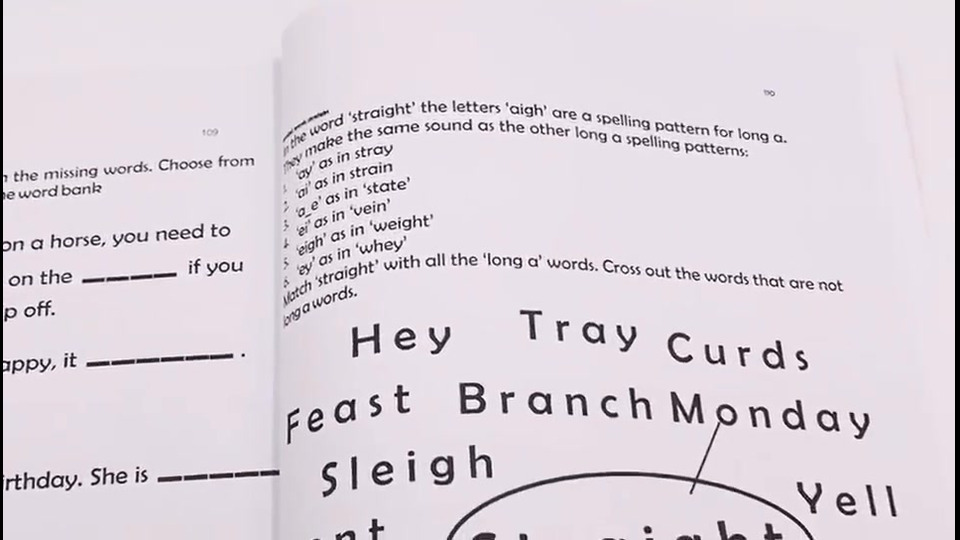 109
the missing words. Choose from
word bank
on a horse, you need to
on the _____ if you
off.
it ______ .
She is _____
110
In the word 'straight' the letters 'aigh' are a spelling pattern for long a.
They make the same sound as the other long a spelling patterns:
1. 'ay' as in stray
2. 'ai' as in strain
3. 'a_e' as in 'state'
4. 'ei' as in 'vein'
5. 'eigh' as in 'weight'
6. 'ey' as in 'whey'
Match 'straight' with all the 'long a' words. Cross out the words that are not
long a words.
Hey Tray Curds
Feast Branch Monday
Sleigh
Yell